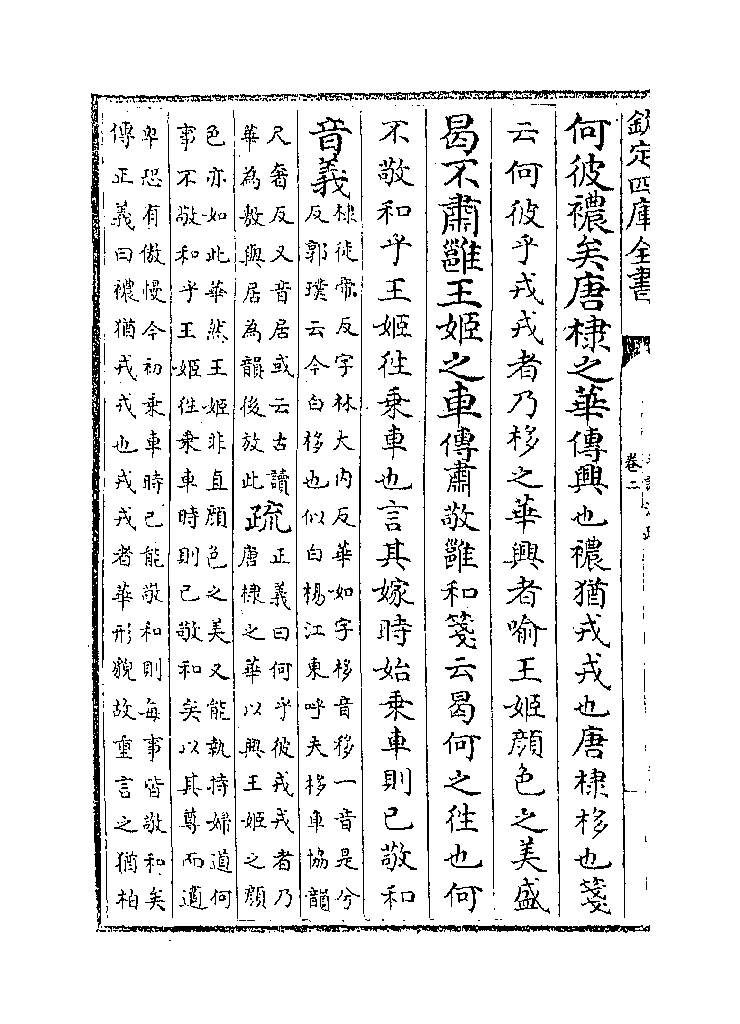 欽定四庫全書
卷二
何彼襛矣唐棣之華傳興也襛猶戎戎也唐棣栘也箋
云何彼乎戎戎者乃栘之華興者喻王姬顔色之美盛
曷不肅雝王姬之車傳肅敬雝和箋云曷何之徃也何
不敬和乎王姬徃乗車也言其嫁時始乗車則已敬和
音義
棣徒帝反字林大内反華如字栘音移一音是兮
反郭璞云今白栘也似白楊江東呼夫栘車協韻
尺奢反又音居或云古讀
華為敷與居為韻後放此
疏
正義曰何乎彼戎戎者乃
唐棣之華以興王姬之顔
色亦如此華然王姬非直顔色之美又能執持婦道何
事不敬和乎王姬徃乗車時則已敬和矣以其尊而適
卑恐有傲慢今初乗車時已能敬和則毎事皆敬和矣
傳正義曰襛猶戎戎也戎戎者華形貌故重言之猶柏